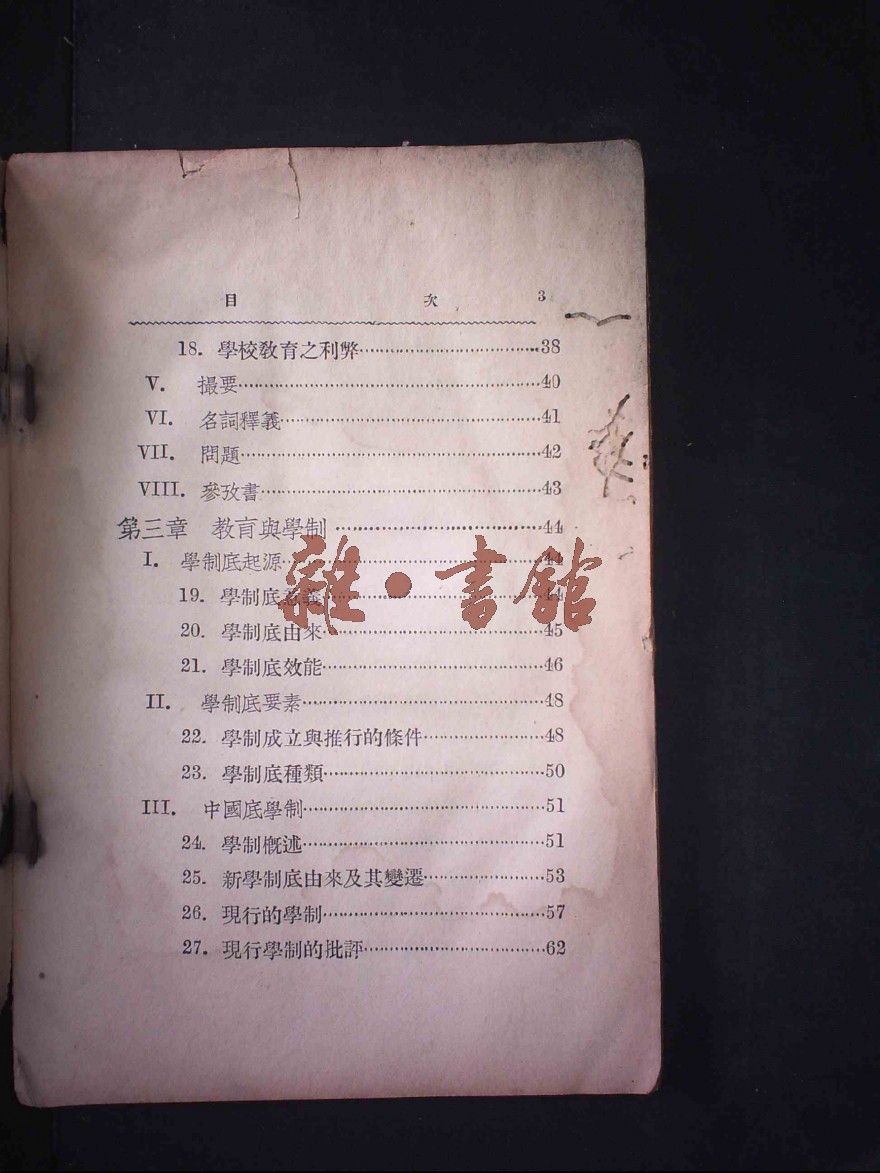 目 次 3
18. 學校敎育之利弊……38
V. 撮要……40
VI. 名詞釋義……41
VII. 問題……42
VIII. 參攷書……43
第三章 敎育與學制……44
I. 學制底起源……44
19. 學制底意義……44
20. 學制底由來……45
21. 學制底效能……46
II. 學制底要素……48
22. 學制成立與推行的條件……48
23. 學制底種類……50
III. 中國底學制……51
24. 學制槪述……51
25. 新學制底由來及其變遷……53
26. 現行的學制……57
27. 現行學制的批評……62
雜·書館